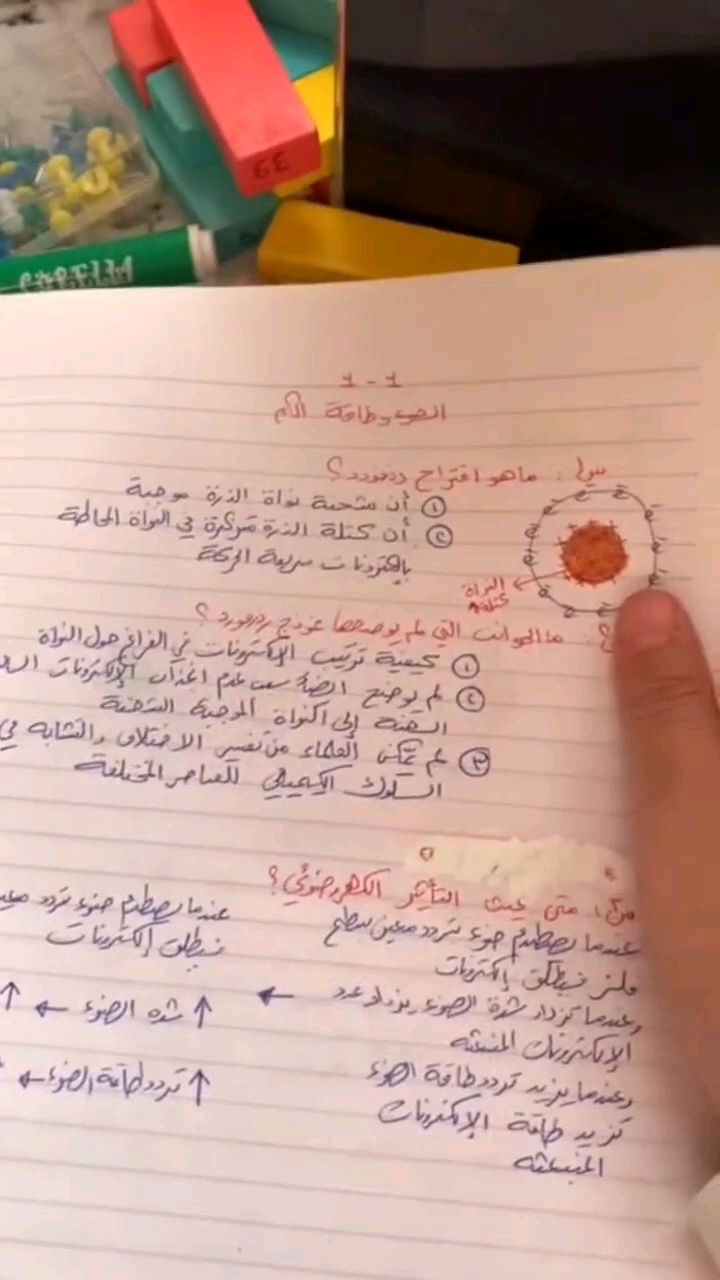 39
1 - 1
الضوء وطاقة الكم
س1: ما هو افتراح رذرفورد؟
① أن شحنة نواة الذرة موجبة
② أن كتلة الذرة متركزة في النواة المحاطة
بإلكترونات سريعة الحركة
النواة
كتلة
؟: ما الجوانب التي لم يوضحها نموذج رذرفورد؟
① كيفية ترتيب الإلكترونات في الفراغ حول النواة
② لم يوضح سبب عدم انجذاب الإلكترونات
الشحنة إلى النواة الموجبة الشحنة
③ لم يتمكن العلماء من تفسير الاختلاف والتشابه في
السلوك الكيميائي للعناصر المختلفة
س: متى يحدث التأثير الكهروضوئي؟
عندما يصطدم ضوء بتردد معين بسطح
فلز فينطلق إلكترونات
وعندما تزداد شدة الضوء يزداد عدد
الإلكترونات المنبعثه
وعندما يزيد تردد طاقة الضوء
تزيد طاقة الإلكترونات
المنبعثه
عندما يصطدم ضوء تردد
فينطلق إلكترونات
↑ شده الضوء ← ↑
↑ تردد طاقة الضوء ←